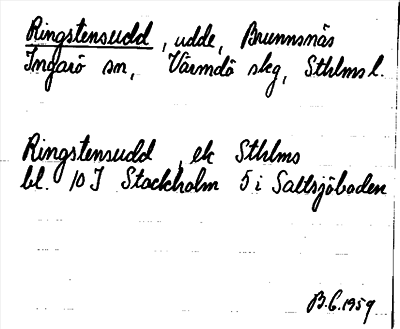 Ringstensudd, udde, Brunnsnäs
Ingarö sn, Värmdö skg, Sthlms l.
Ringstensudd, ek Sthlms
bl. 10 I Stockholm 5 i Saltsjöbaden
B.C. 1959